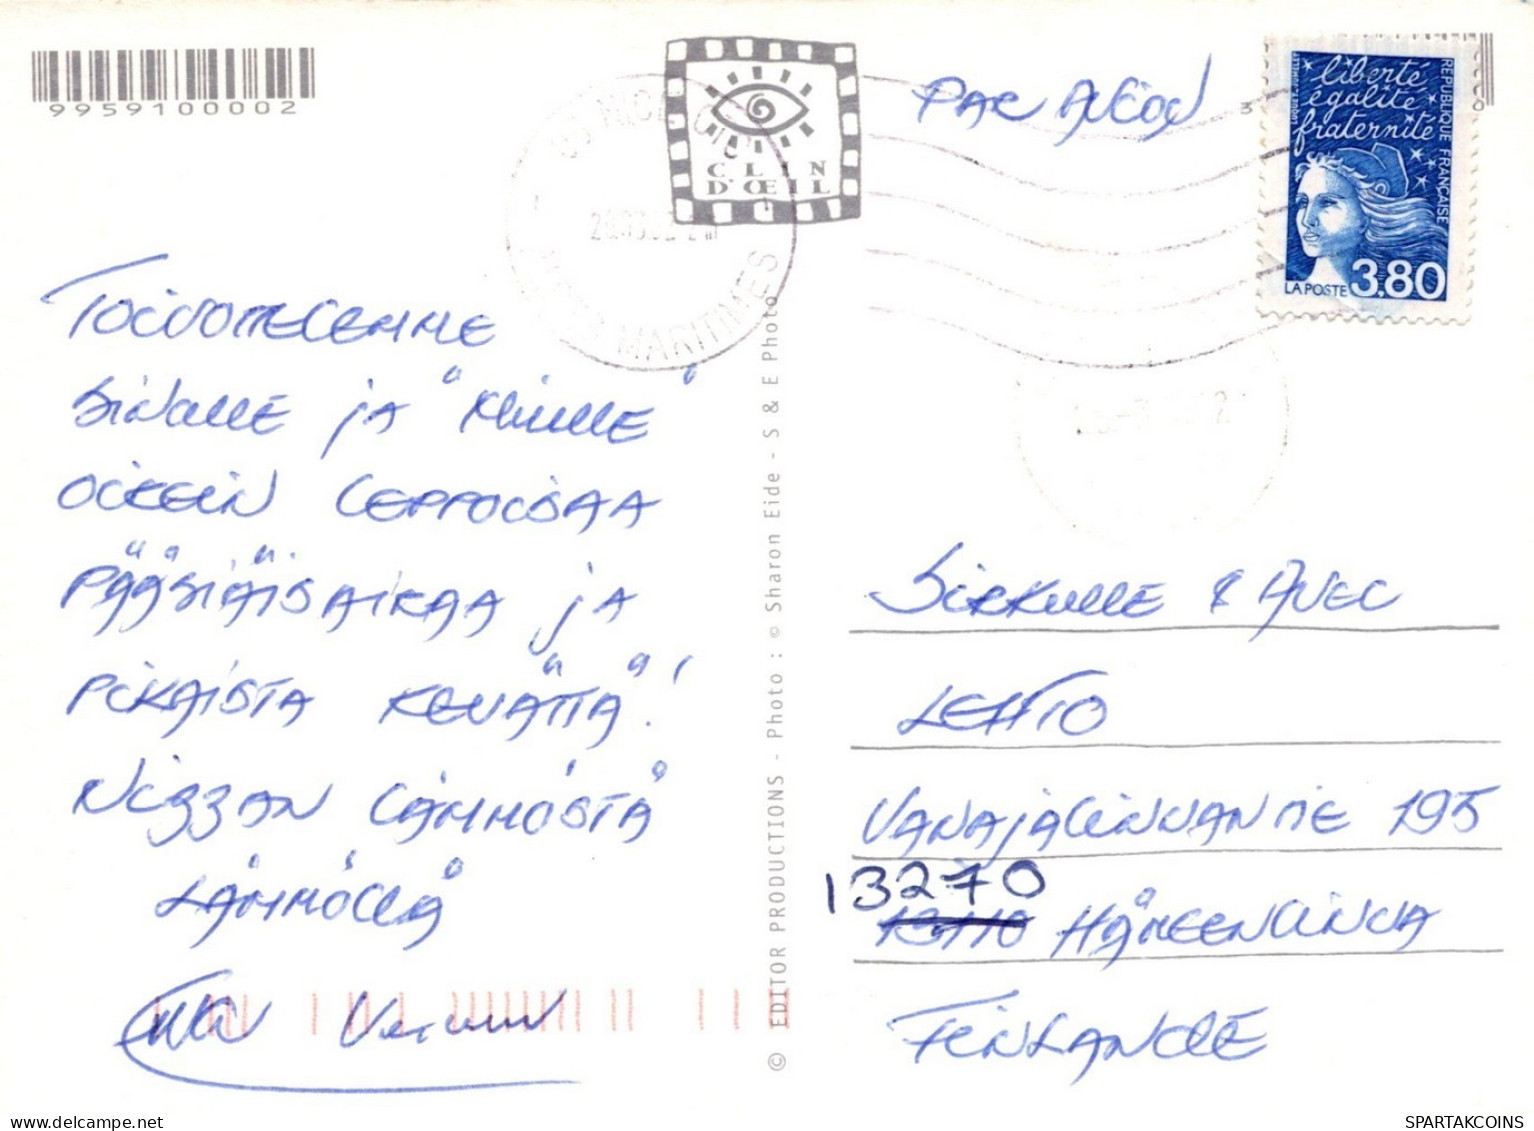 9959100002
CLIN
D'ŒIL
PAR AVION
liberté
égalité
fraternité
REPUBLIQUE FRANÇAISE
LA POSTE 3,80
MARITIMES
TOIVOTTELEMME
SINULLE JA "MUILLE"
OIKEIN LEPPOISAA
PÄÄSIÄISAIKAA JA
PIKAISTA KEVÄTTÄ!
NIZZAN LÄMMÖSTÄ
LÄMMÖLLÄ
© EDITOR PRODUCTIONS - Photo : © Sharon Eide - S & E Photo
SIRKULLE & AVEC
LEHTO
VANAJALINNANTIE 195
13270
13110 HÄMEENLINNA
FINLANDE
SPARTAKCOINS.COM